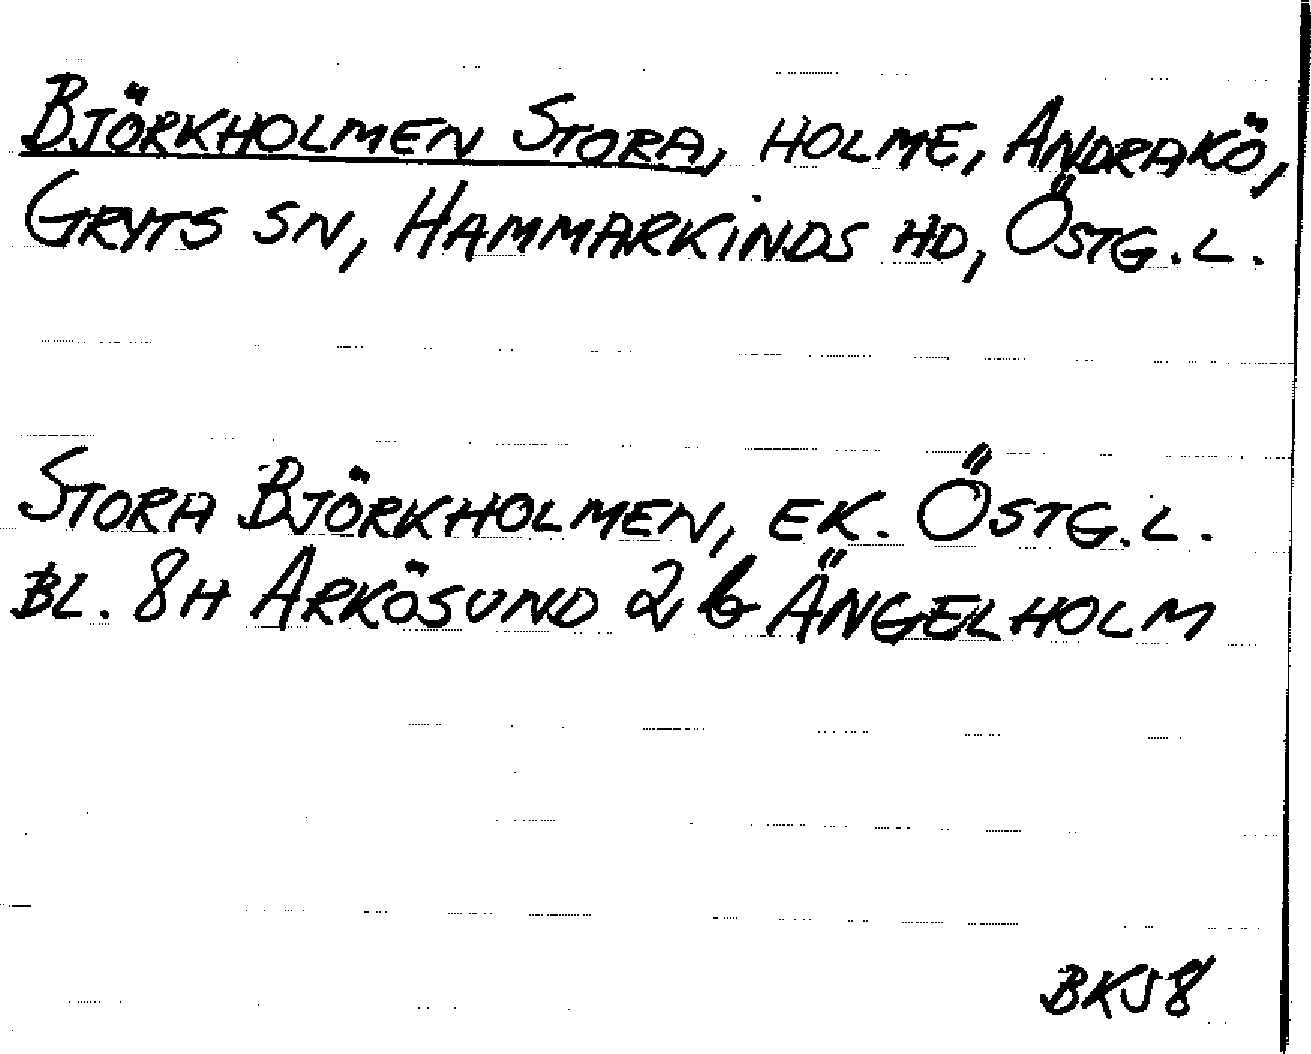 BJÖRKHOLMEN STORA, HOLME, ANDRAKÖ,
GRYTS SN, HAMMARKINDS HD, ÖSTG.L.
STORA BJÖRKHOLMEN, EK. ÖSTG.L.
BL. 8H ARKÖSUND 2 b ÄNGELHOLM
BK58